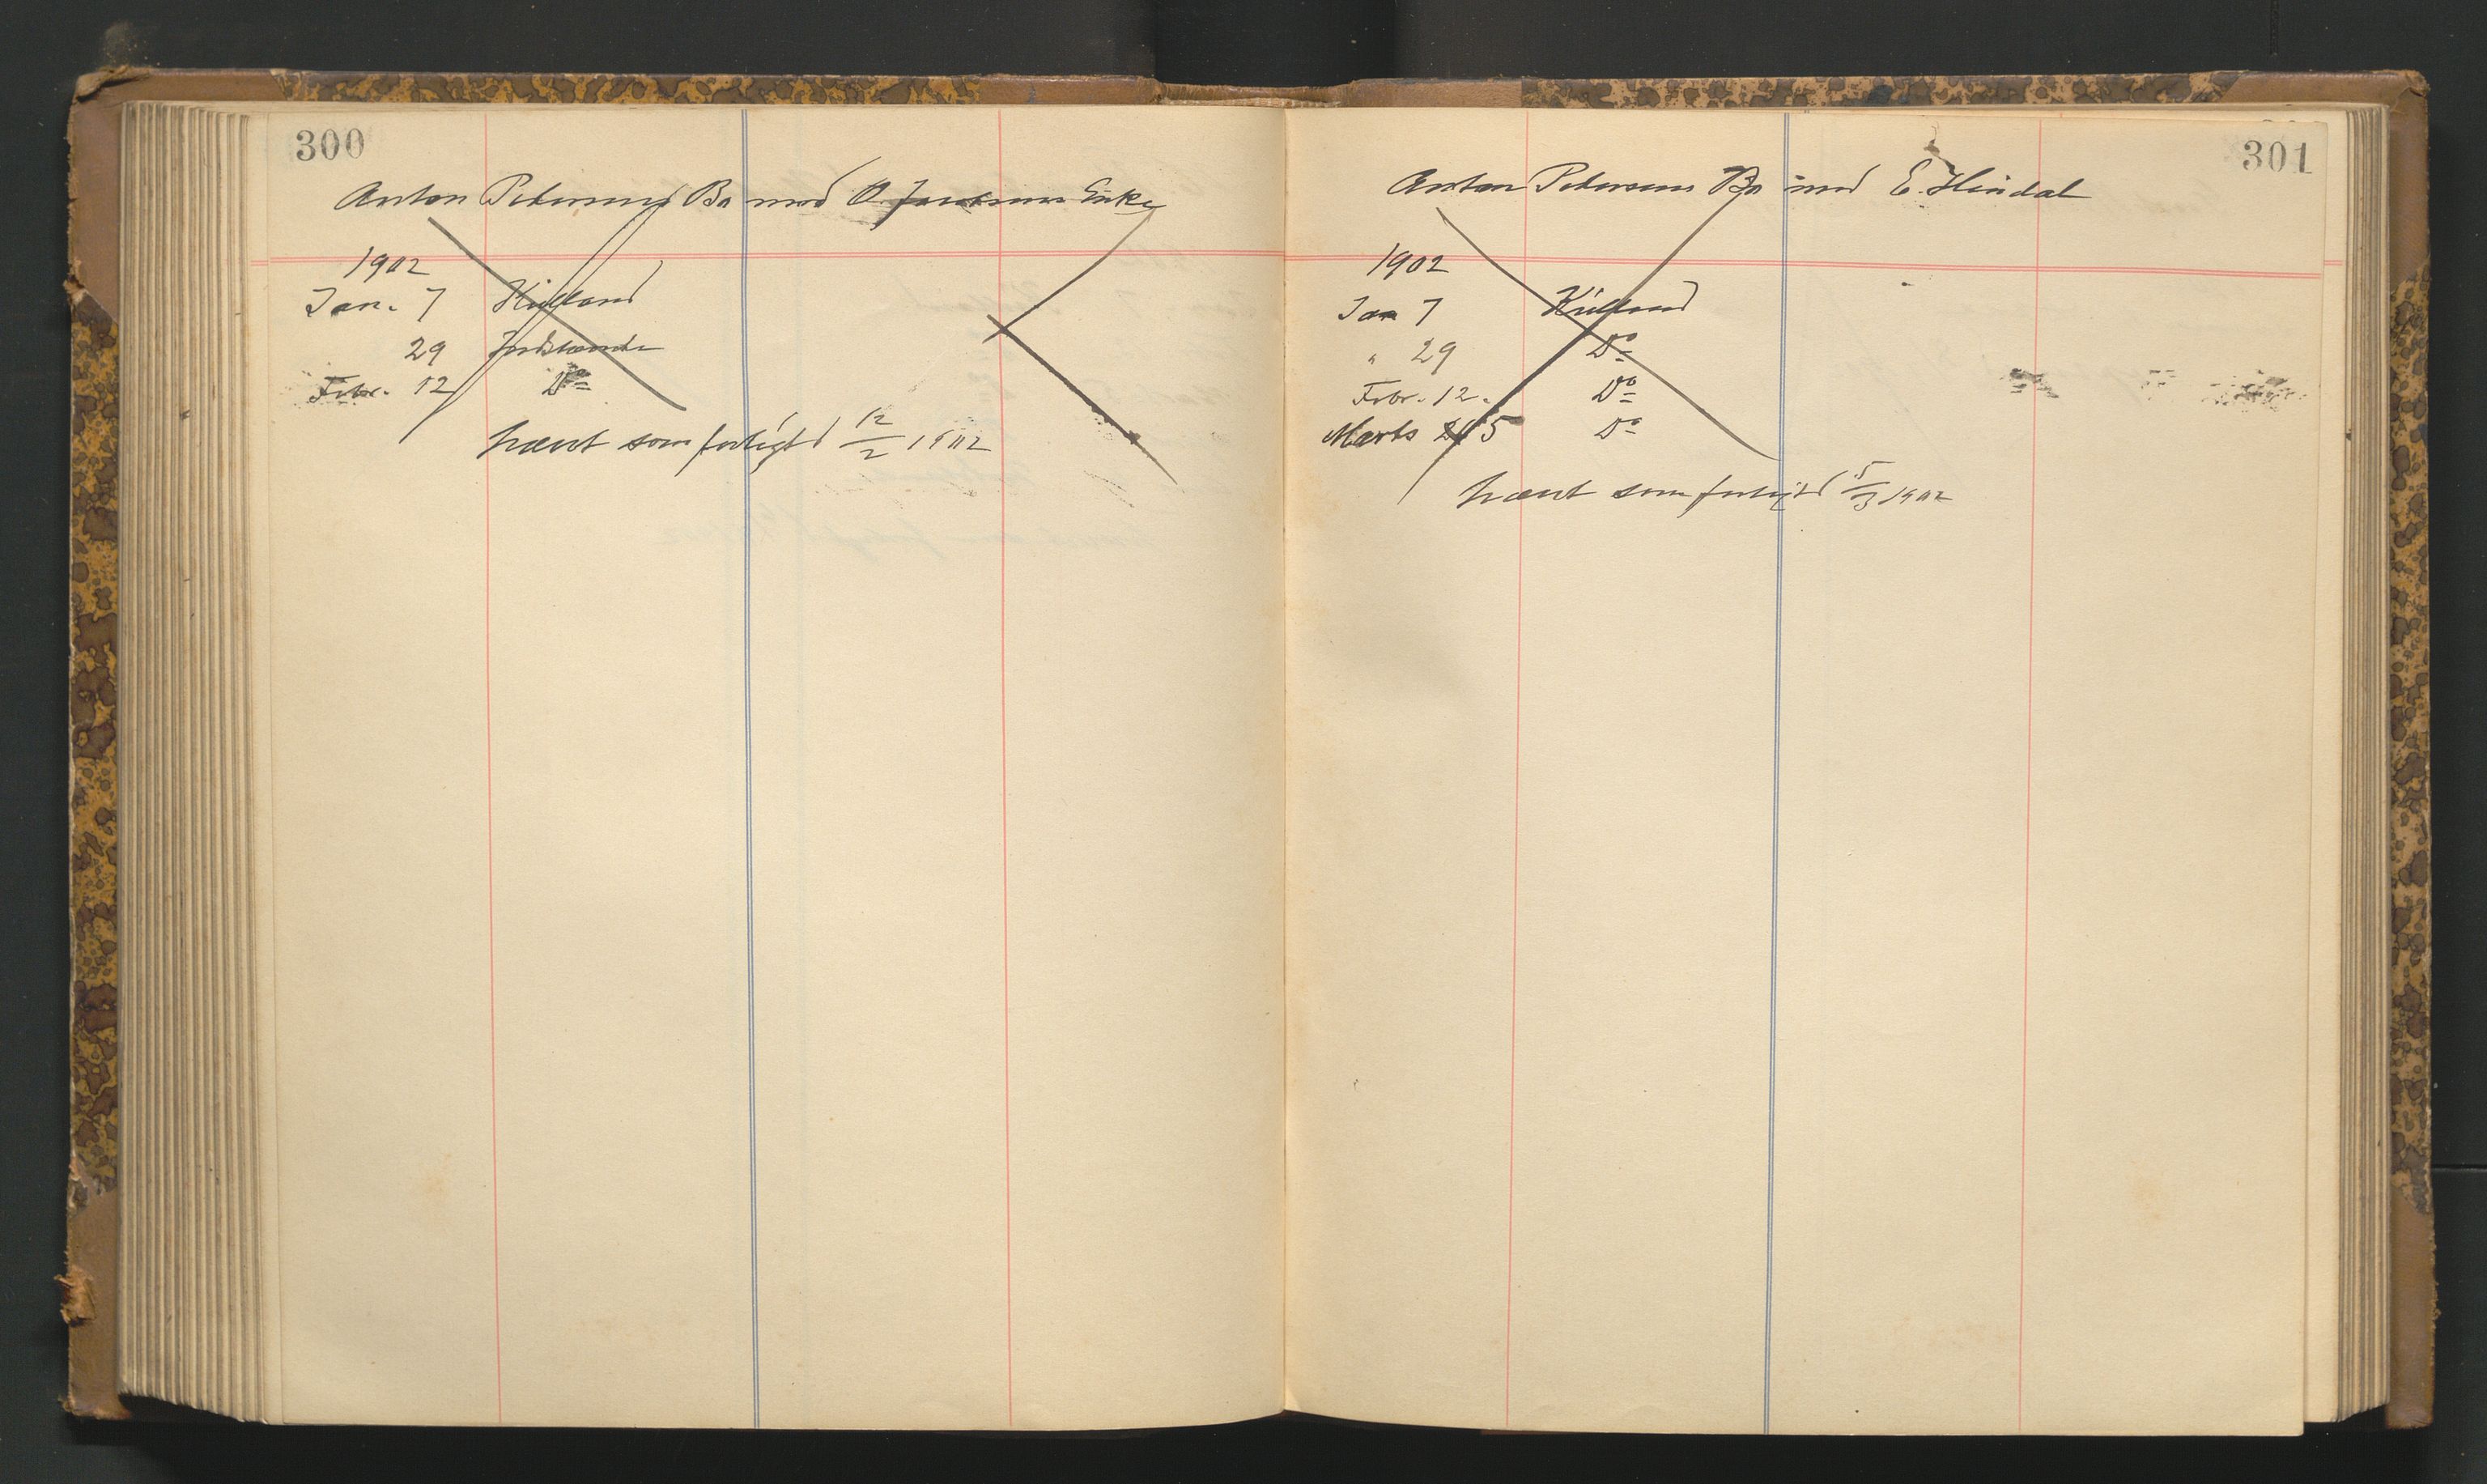 300
Anton Petersens Bo mod O. Jacobsens Enke
1902
Jan. 7 Kielland
29 Indstævnte
Febr. 12 Do
hævet som forligt 12/2 1902
301
Anton Petersens Bo mod E. Hindal
1902
Jan 7 Kielland
" 29 Do
Febr. 12. Do
Marts 5 Do
hævet som forligt 5/3 1902